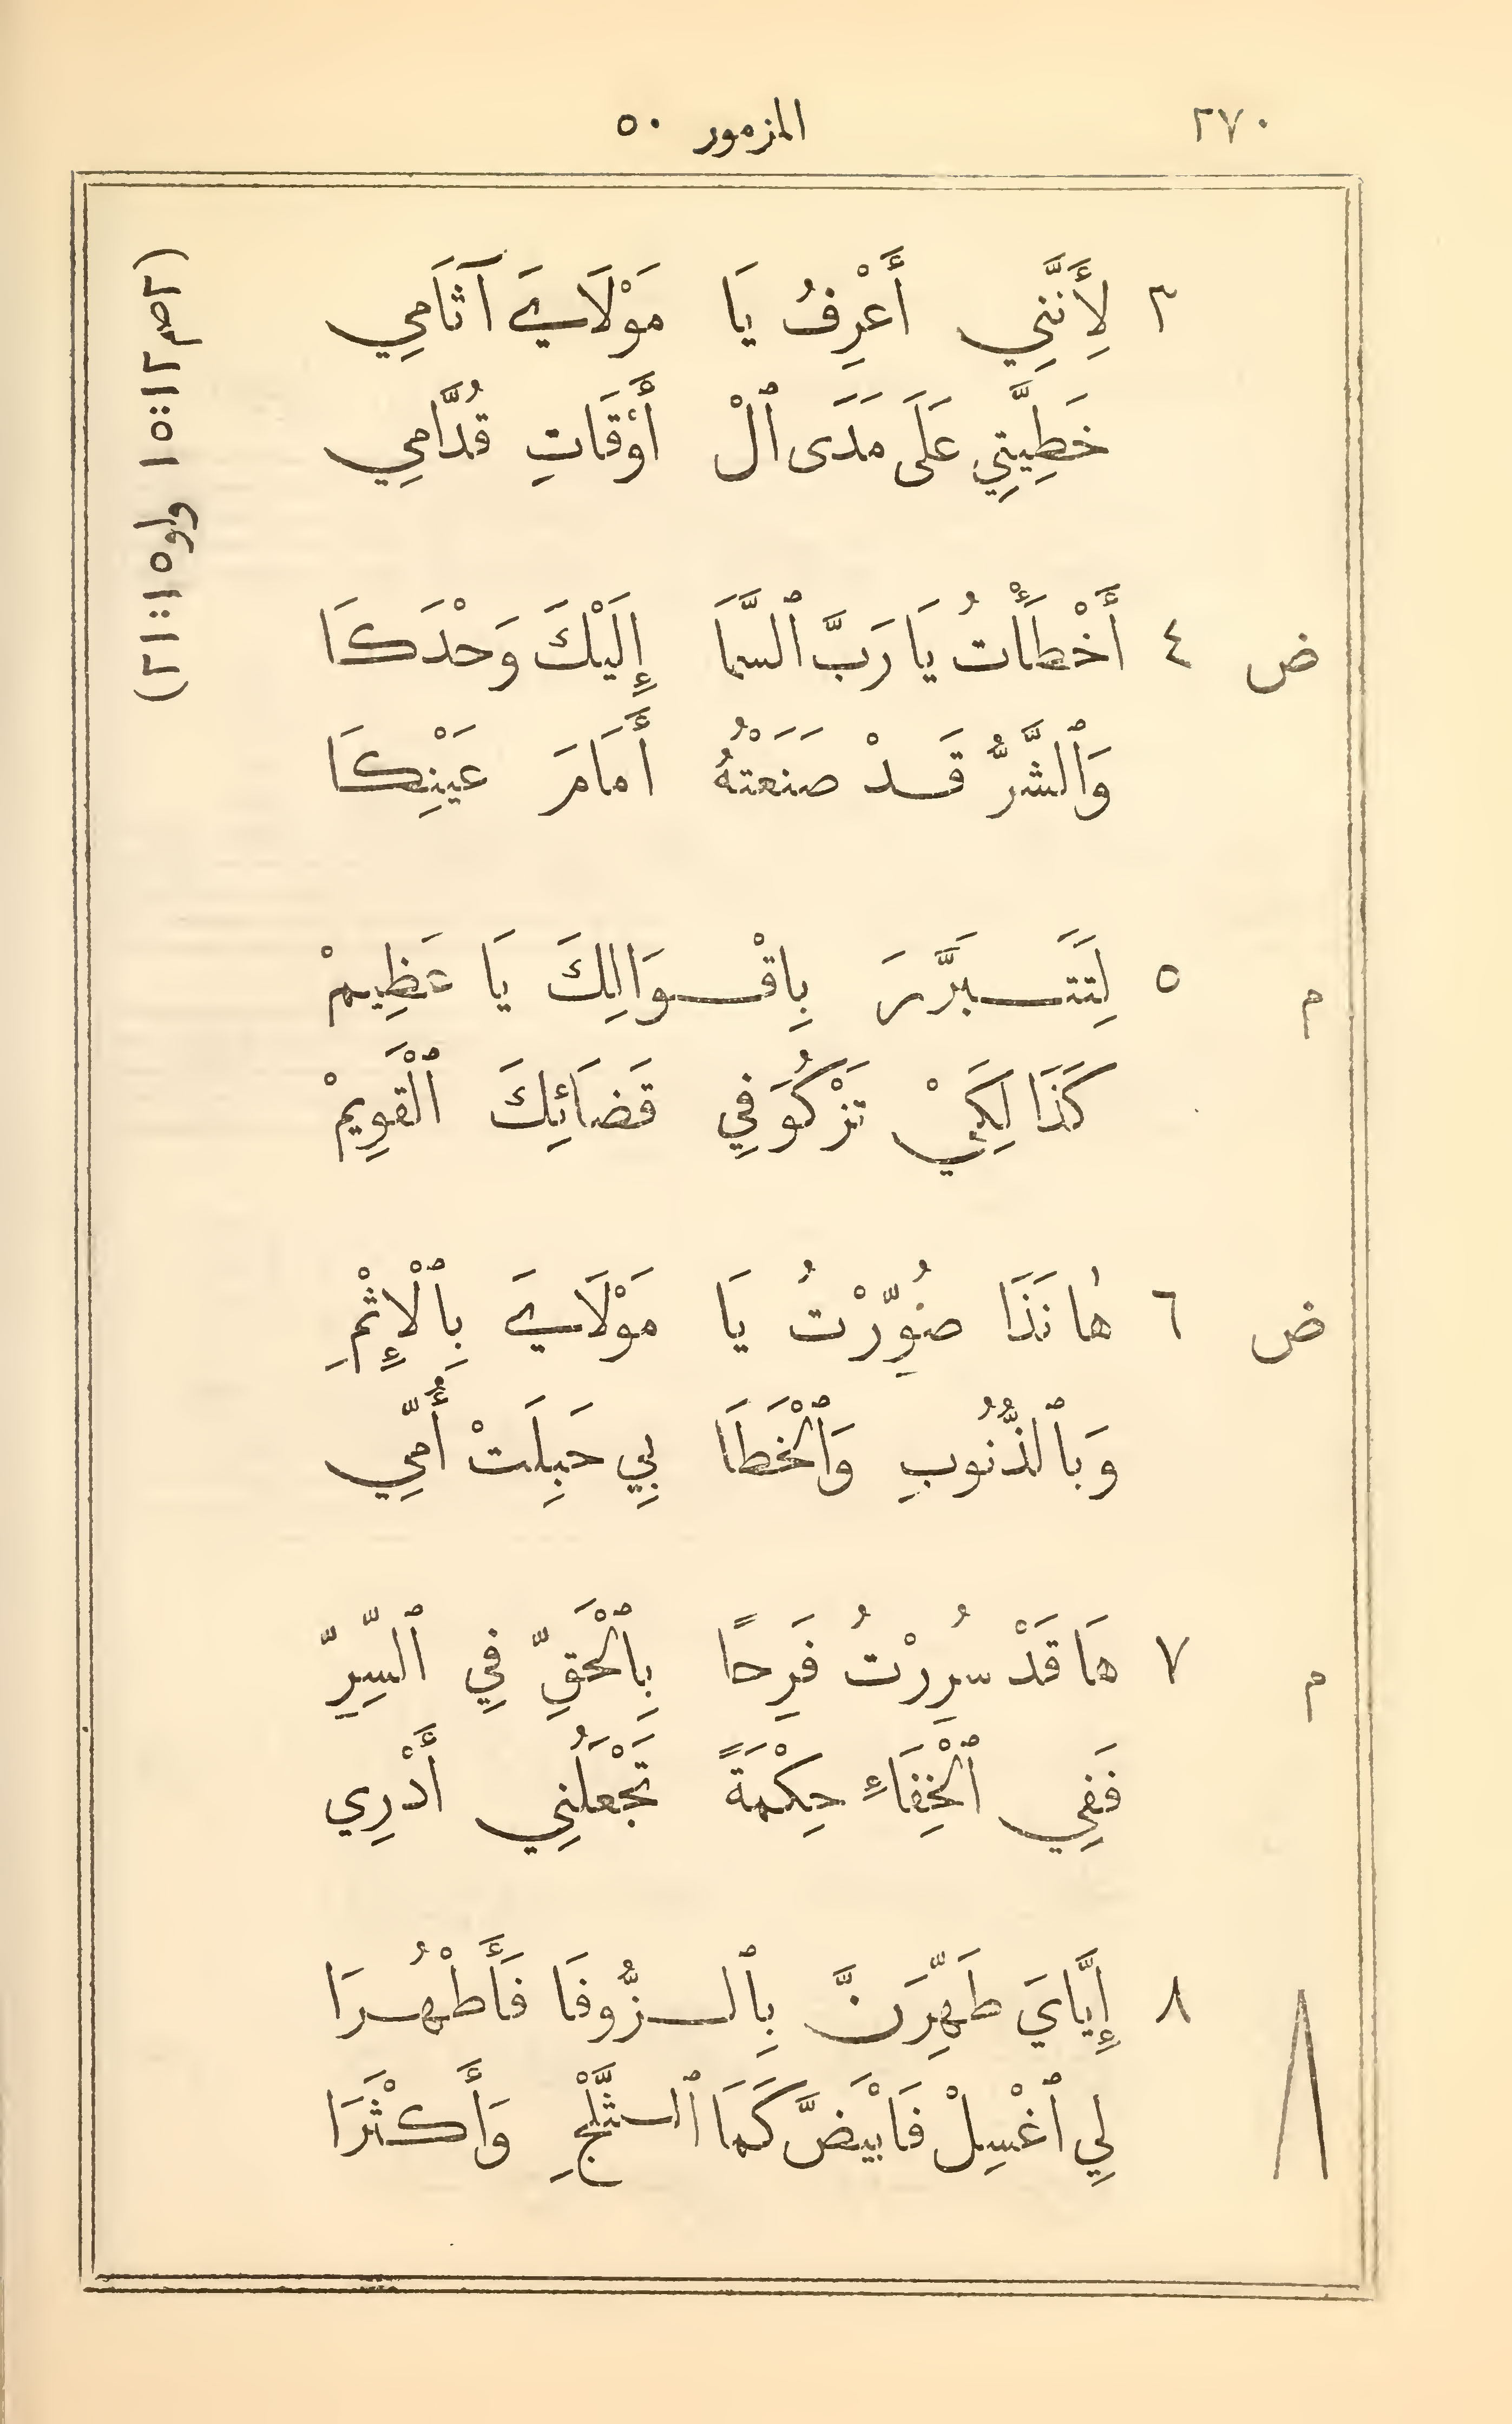 ٢٧٠ المزمور ٥٠
٣ لِأَنَّنِي أَعْرِفُ يَا مَوْلَايَ آثَامِي
خَطِيَّتِي عَلَى مَدَى ٱلْ أَوْقَاتِ قُدَّامِي
ض ٤ أَخْطَأْتُ يَا رَبَّ ٱلسَّمَا إِلَيْكَ وَحْدَكَا
وَٱلشَّرُّ قَدْ صَنَعْتُهُ أَمَامَ عَيْنِكَا
م ٥ لِتَتَبَرَّرَ بِاقْوَالِكَ يَا عَظِيمْ
كَذَا لِكَيْ تَزْكُوَ فِي قَضَائِكَ ٱلْقَوِيمْ
ض ٦ هٰا نَذَا صُوِّرْتُ يَا مَوْلَايَ بِٱلْإِثْمِ
وَبِٱلذُّنُوبِ وَٱلْخَطَا بِي حَبِلَتْ أُمِّي
م ٧ هَا قَدْ سُرِرْتُ فَرِحًا بِٱلْحَقِّ فِي ٱلسِّرِّ
فَفِي ٱلْخَفَاءِ حِكْمَةً تَجْعَلُنِي أَدْرِي
٨ إِيَّايَ طَهِّرَنَّ بِٱلزُّوفَا فَأَطْهُرَا
لِي ٱغْسِلْ فَابْيَضَّ كَمَا ٱلثَّلْجِ وَأَكْثَرَا
٨
(٢صم ١٢: ١٥ ولو ١٥: ٢١)